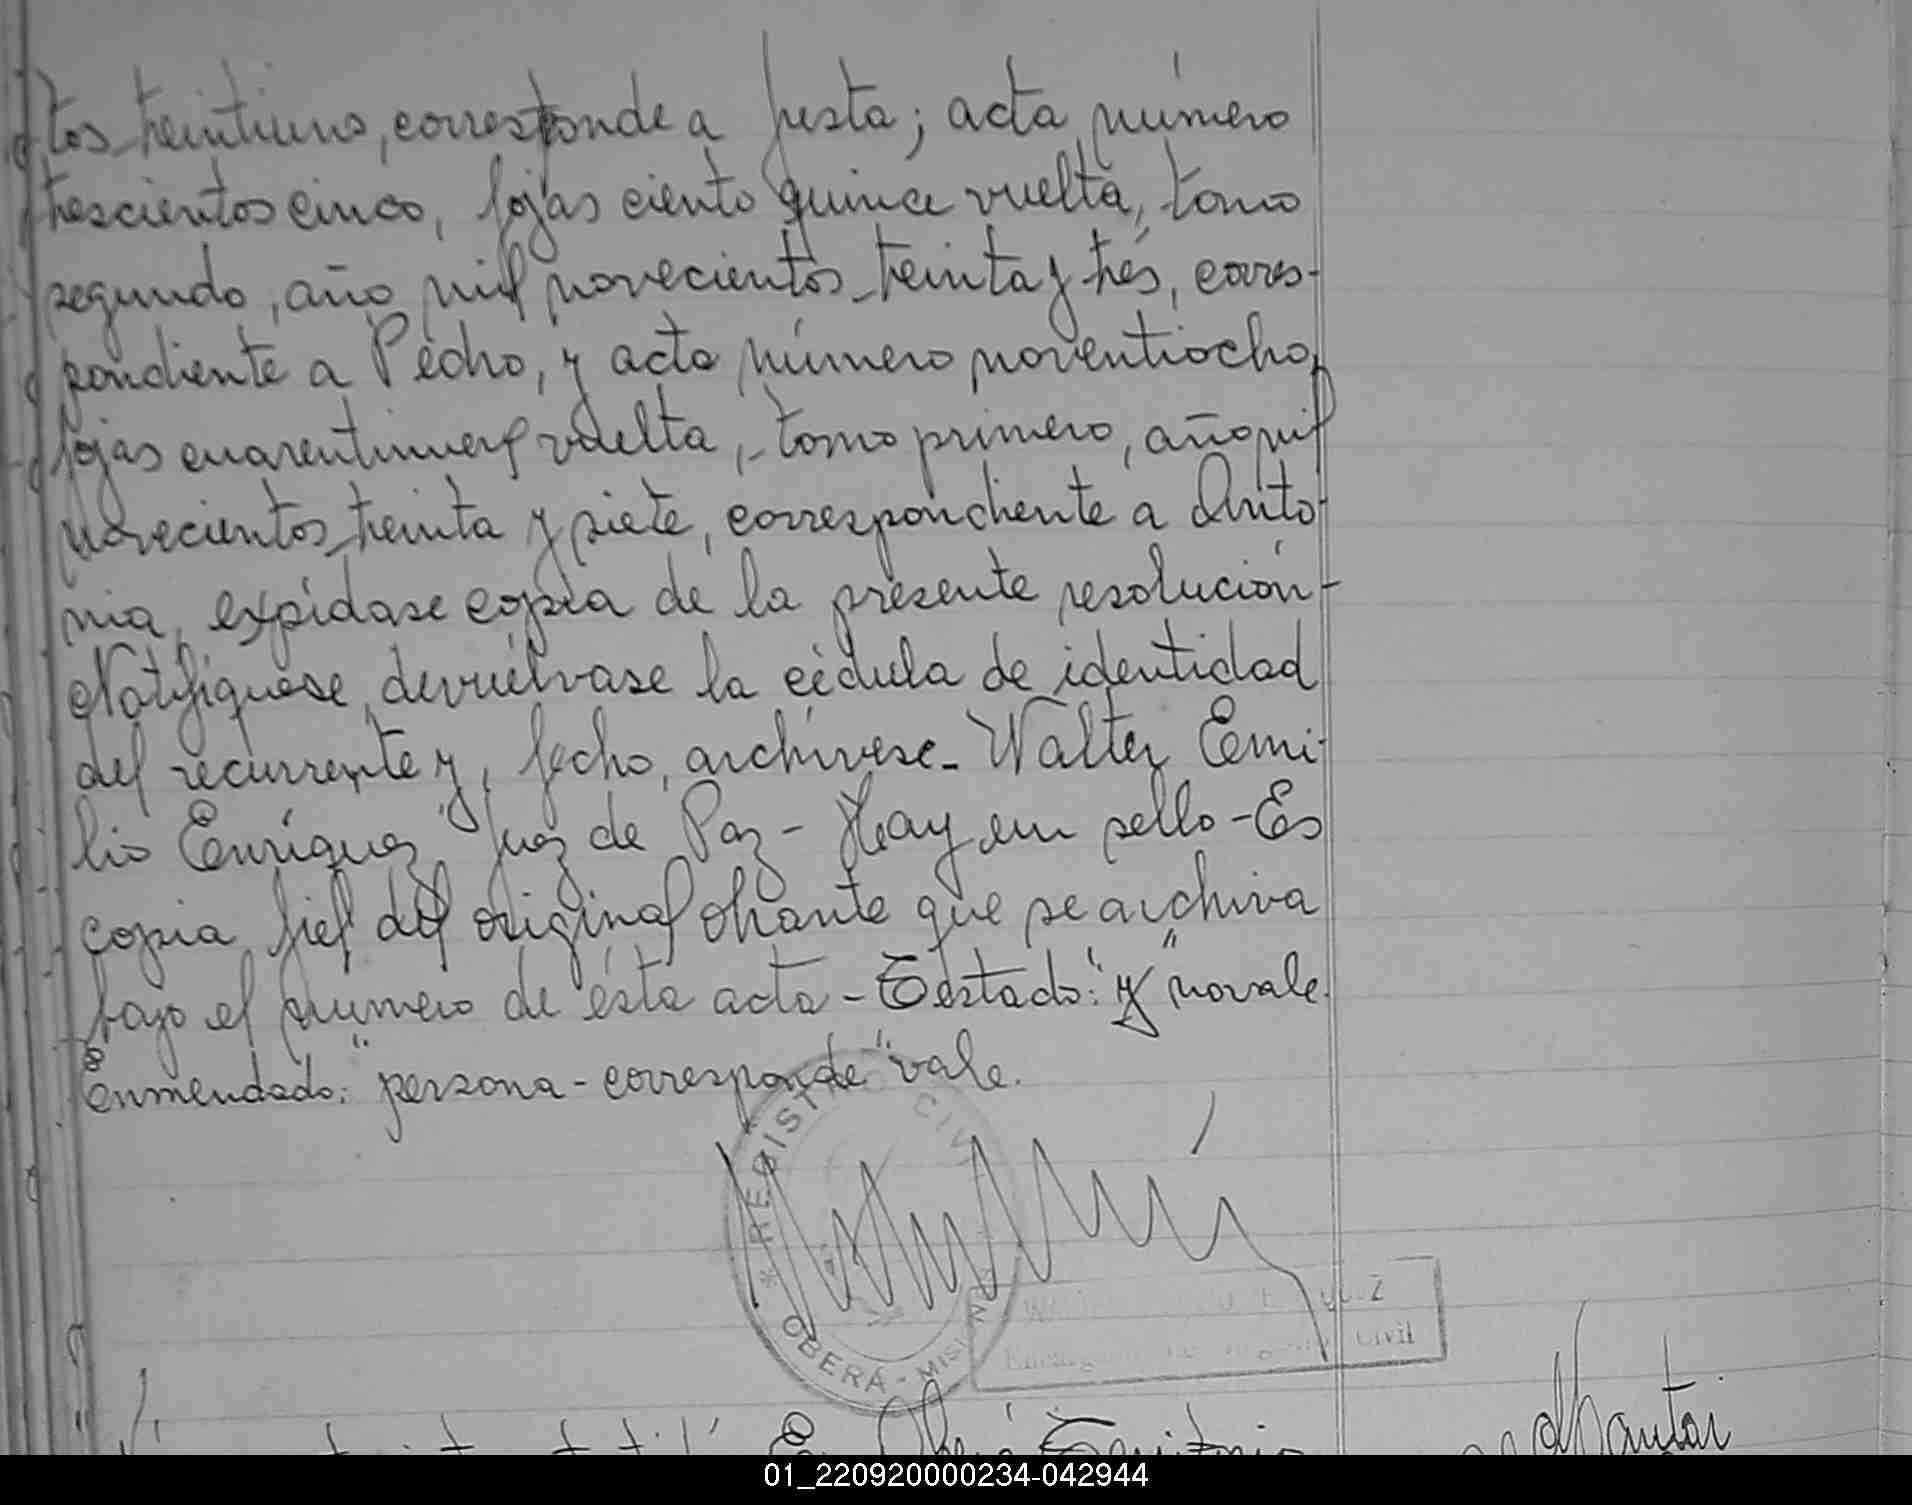 tos treintiuno, corresponde a Justa; acta número
trescientos cinco, fojas ciento quince vuelta, tomo
segundo, año mil novecientos treinta y trés, corres-
pondiente a Pedro, y acta número noventiocho,
fojas cuarentinueve vuelta, tomo primero, año mil
novecientos treinta y siete, correspondiente a Anto-
nia, expídase copia de la presente resolución-
Notifíquese, devuélvase la cédula de identidad
del recurrente y, fecho, archívese- Walter Emi-
lio Enríquez Juez de Paz- Hay un sello- Es
copia fiel del original obrante que se archiva
bajo el número de ésta acta- Testado: "y" no vale.
Enmendado: "persona- corresponde" vale.
REGISTRO CIVIL
* OBERÁ - MISIONES
Registro Civil
En Oberá, Territorio
01_220920000234-042944